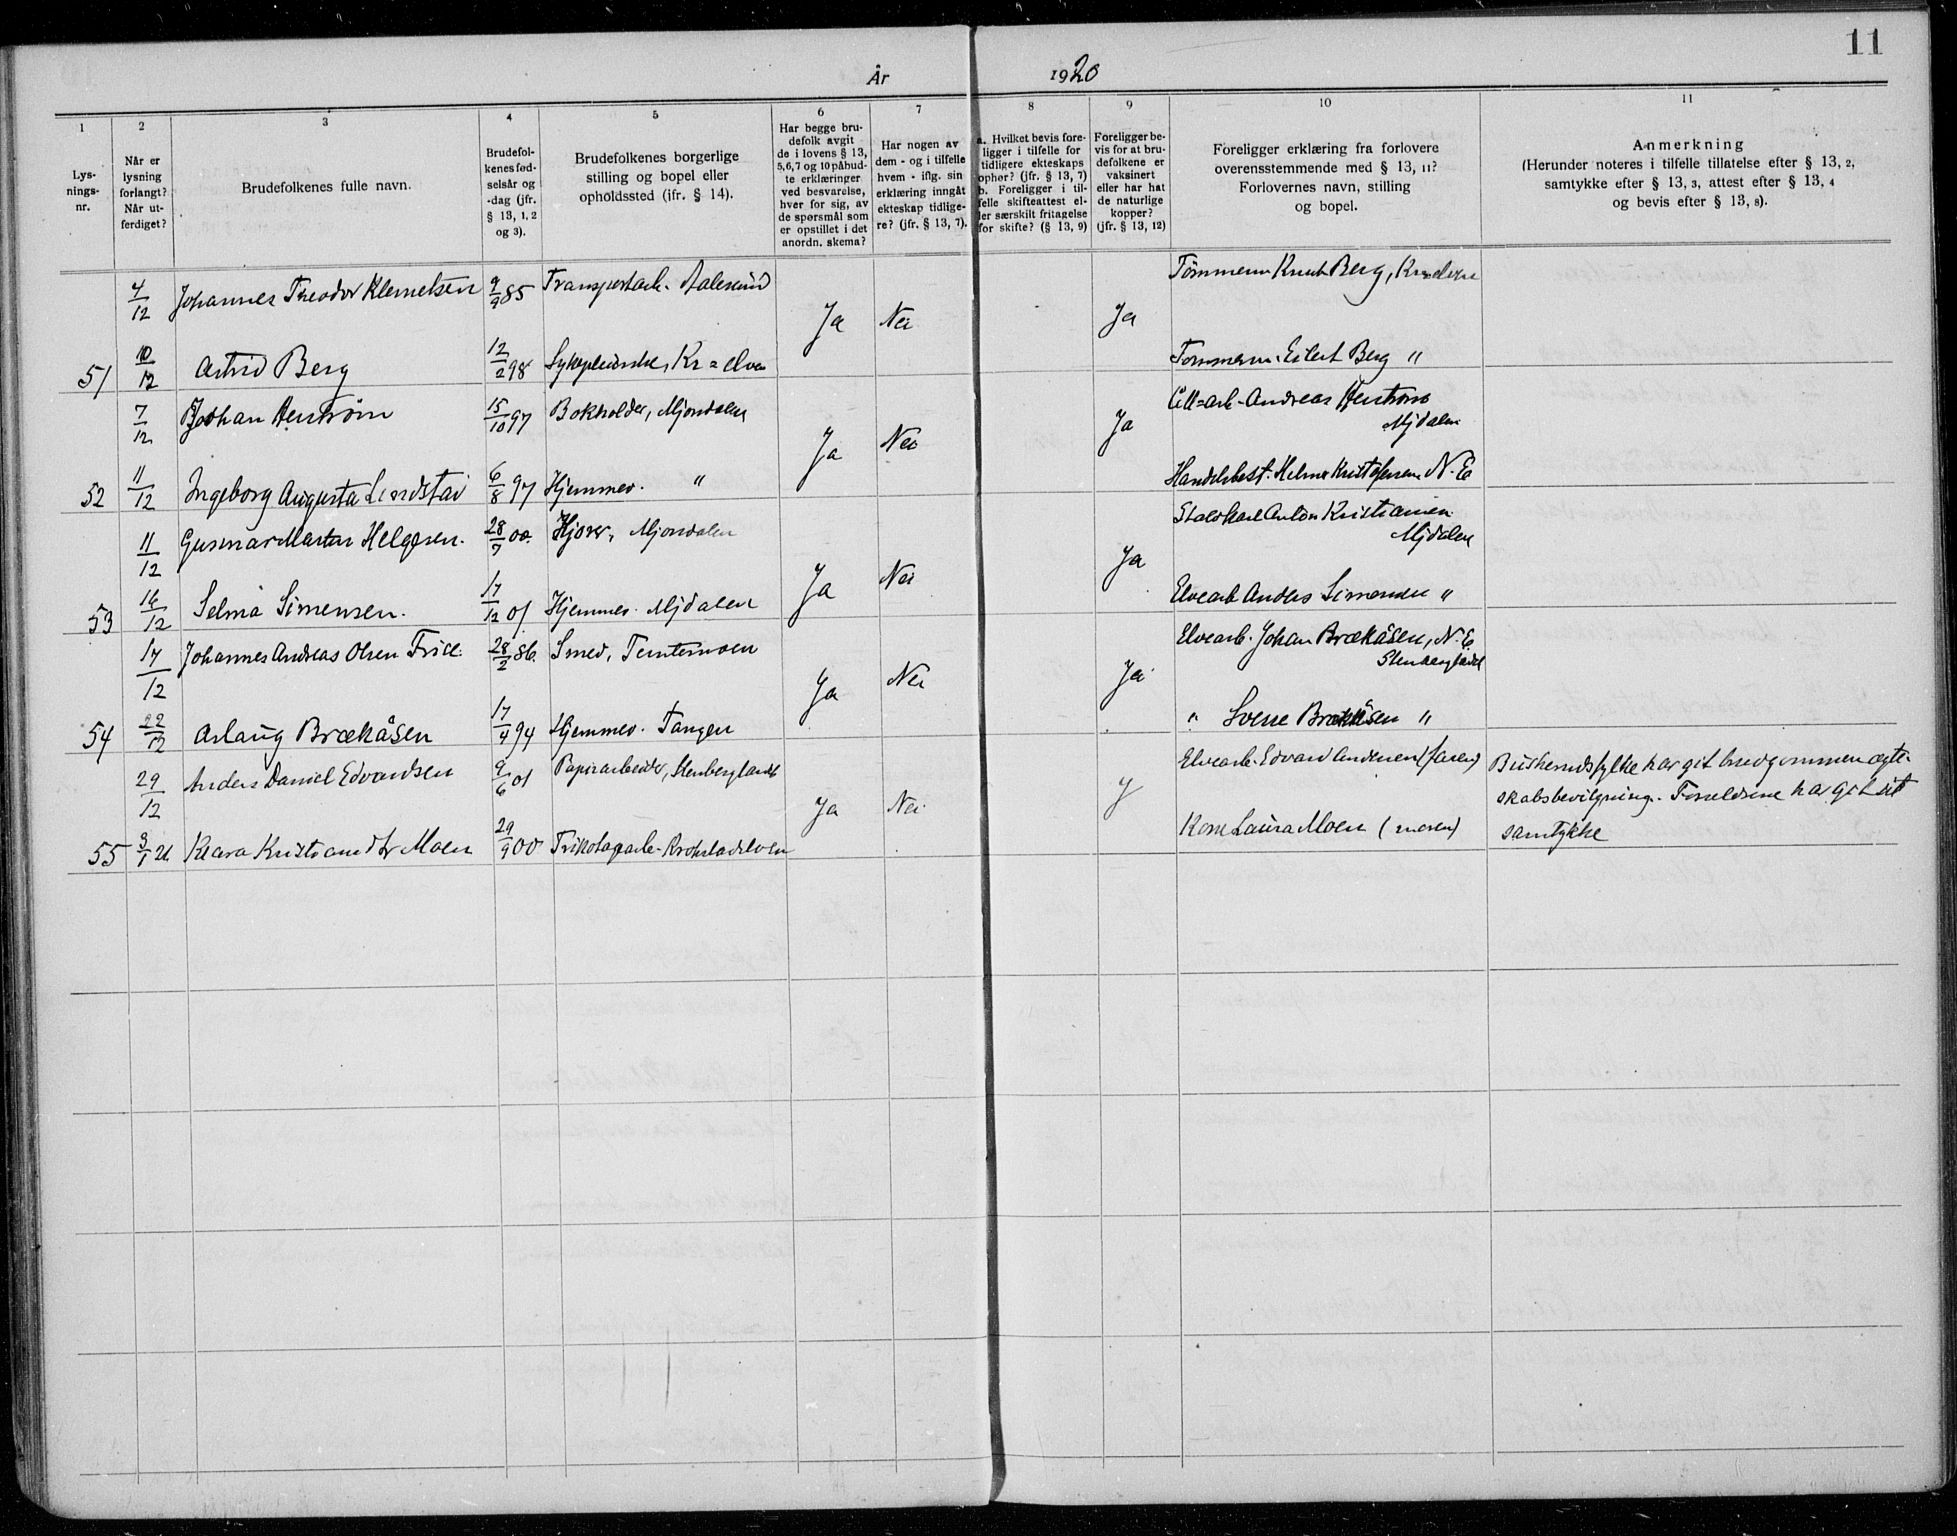 11
År 1920
1 2 3 4 5 6 7 8 9 10 11
Lys-
nings-
nr.
Når er
lysning
forlangt?
Når ut-
ferdiget?
Brudefolkenes fulle navn.
Brudefol-
kenes fød-
selsår og
-dag (jfr.
§ 13, 1, 2
og 3).
Brudefolkenes borgerlige
stilling og bopel eller
opholdssted (jfr. § 14).
Har begge bru-
defolk avgit
de i lovens § 13,
5,6,7 og 10 påbud-
te erklæringer
ved besvarelse,
hver for sig, av
de spørsmål som
er opstillet i det
anordn. skema?
Har nogen av
dem - og i tilfelle
hvem - iflg. sin
erklæring inngått
ekteskap tidlige-
re? (jfr. § 13, 7).
a. Hvilket bevis fore-
ligger i tilfelle for
tidligere ekteskaps
ophør? (jfr. § 13, 7)
b. Foreligger i til-
felle skifteattest el-
ler særskilt fritagelse
for skifte? (§ 13, 9)
Foreligger be-
vis for at bru-
defolkene er
vaksinert
eller har hat
de naturlige
kopper?
(jfr. § 13, 12)
Foreligger erklæring fra forlovere
overensstemmende med § 13, 11?
Forlovernes navn, stilling
og bopel.
Anmerkning
(Herunder noteres i tilfelle tillatelse efter § 13, 2,
samtykke efter § 13, 3, attest efter § 13, 4
og bevis efter § 13, 8).
4/12 Johannes Theodor Klemetsen 9/9 85 Transportarb. Aalesund Tømmerm Knut Berg,
Ja Nei Ja
51 10/12 Astrid Berg 12/2 98 Sykepleierske, Kr=elven Tømmerm. Eilert Berg "
7/12 Johan 15/10 97 Bokholder, Mjøndalen Andreas
Mjdalen
Ja Nei Ja
52 11/12 Ingeborg Augusta Lindstad 6/8 97 Hjemmev. " Handelsbest. Kristofersen N. E
11/12 Gusmar Martin Helgesen. 28/7 00. Mjøndalen Anton Kristiansen
Mjdalen
Ja Nei Ja
53 16/12 Selma Simensen. 17/12 01 Hjemmev. Mjdalen Elvearb Anders Simensen "
17/12 Johannes Andreas Olsen 28/2 86. Smed, Elvearb. Johan Brækåsen, N. E.
Ja Nei Ja
54 22/12 Aslaug Brækåsen 17/4 94 Hjemmev. Tangen " Sverre Brækåsen "
29/12 Anders Daniel Edvardsen 9/6 01 Papirarbeider, Stenberglandet Elvearb. Edvard Andersen (faren) Buskeruds fylke har git brudgommen ægte-
skabsbevilgning. Foreldrene har git sit
Ja Nei J
55 3/1 21 Klara Kristiansdtr Moen 29/9 00 Trikotagearb. Krokstadelven Kone Laura Moen (moren) samtykke